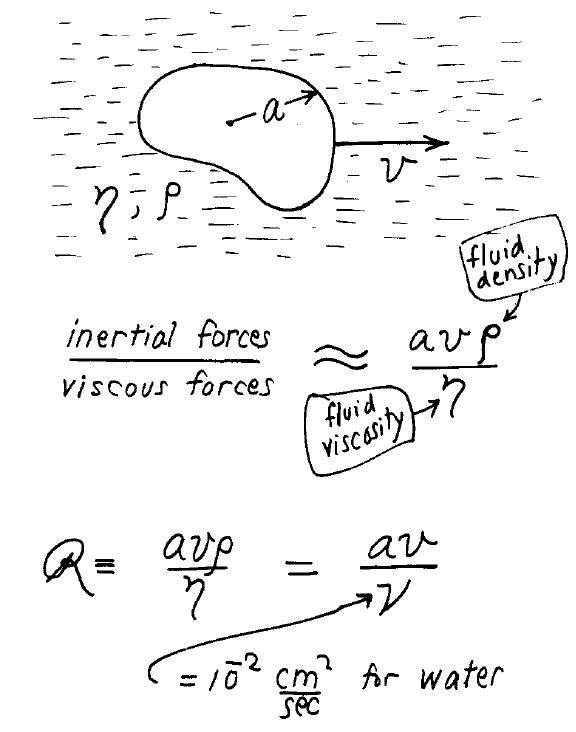 a
v
η, ρ
fluid
density
inertial forces
viscous forces
≈
avρ
η
fluid
viscosity
R ≡ avρ/η = av/ν
= 10⁻² cm²/sec for water